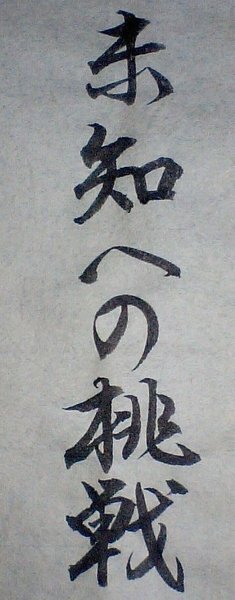 未知への挑戦